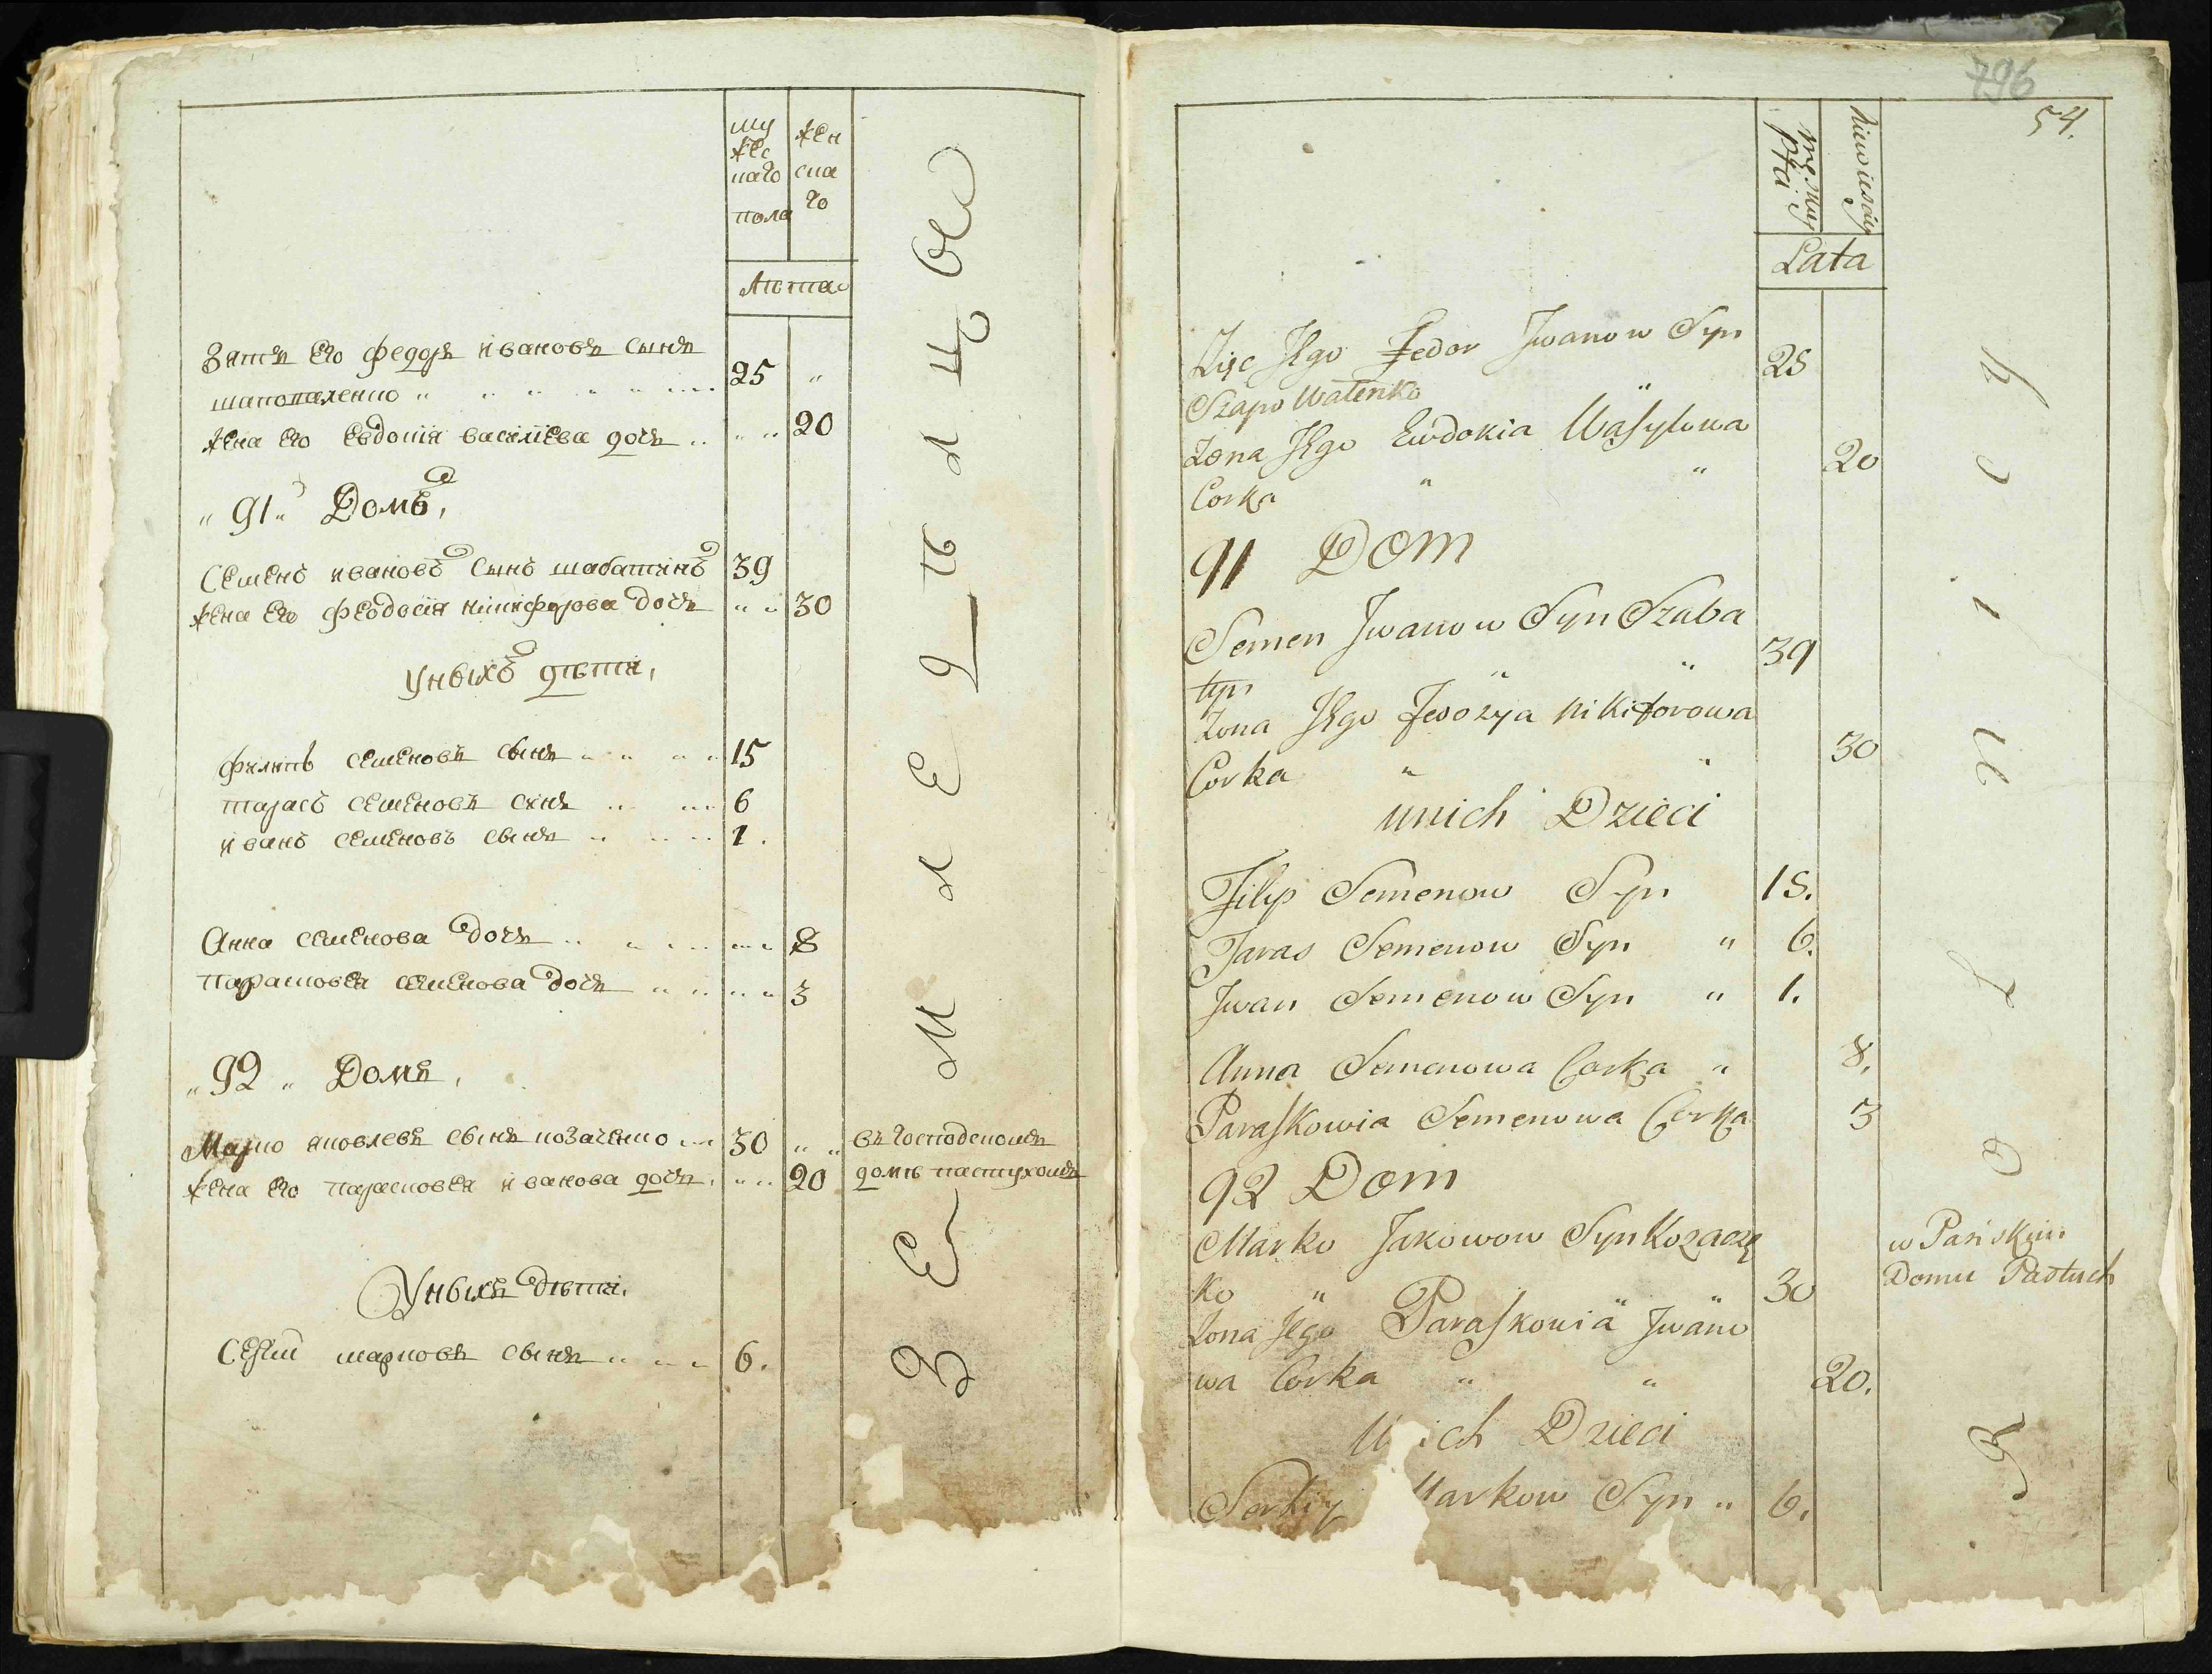 му
жес
каго
пола
жен
ска
го
Лѣта
Зять его федоръ ивановъ сынъ
шаповаленко 25
жена его евдокия василиева дочь 20
91 Домъ
Семенъ ивановъ сынъ шабатинъ 39
жена его феодосия никифорова дочь 30
У нихъ дети
филипъ семеновъ сынъ 15
тарасъ семеновъ синъ 6
иванъ семеновъ сынъ 1.
Анна семенова дочь 8
парасковея семенова дочь 3
92 Домъ
Марко яковлевъ сынъ козаченко 30 въ господскомъ
жена его парасковея иванова дочь 20 доме пастухомъ
У нихъ дети
Сергий марковъ сынъ 6.
З Е М Л Е Д
796
54.
męskiey
płci
Niewieściey
Lata
Zięć Jego Fedor Jwanow Syn 25
Szapowalenko
Zona Jego Ewdokia Wasylowa 20
Corka
91 Dom
Semen Jwanow Syn Szaba 39
tyn
Zona Jego Fedozya Nikiforowa 30
Corka
unich Dzieci
Filip Semenow Syn 15.
Taras Semenow Syn 6.
Jwan Semenow Syn 1.
Anna Semenowa Corka 8.
Paraskowia Semenowa Corka 3
92 Dom
Marko Jakowow Syn Kozacze w Pańskim
ko 30 Domu Pastuch
Zona Jego Paraskowia Jwano
wa Corka 20.
U ich Dzieci
Serhiy arkow Syn 6.